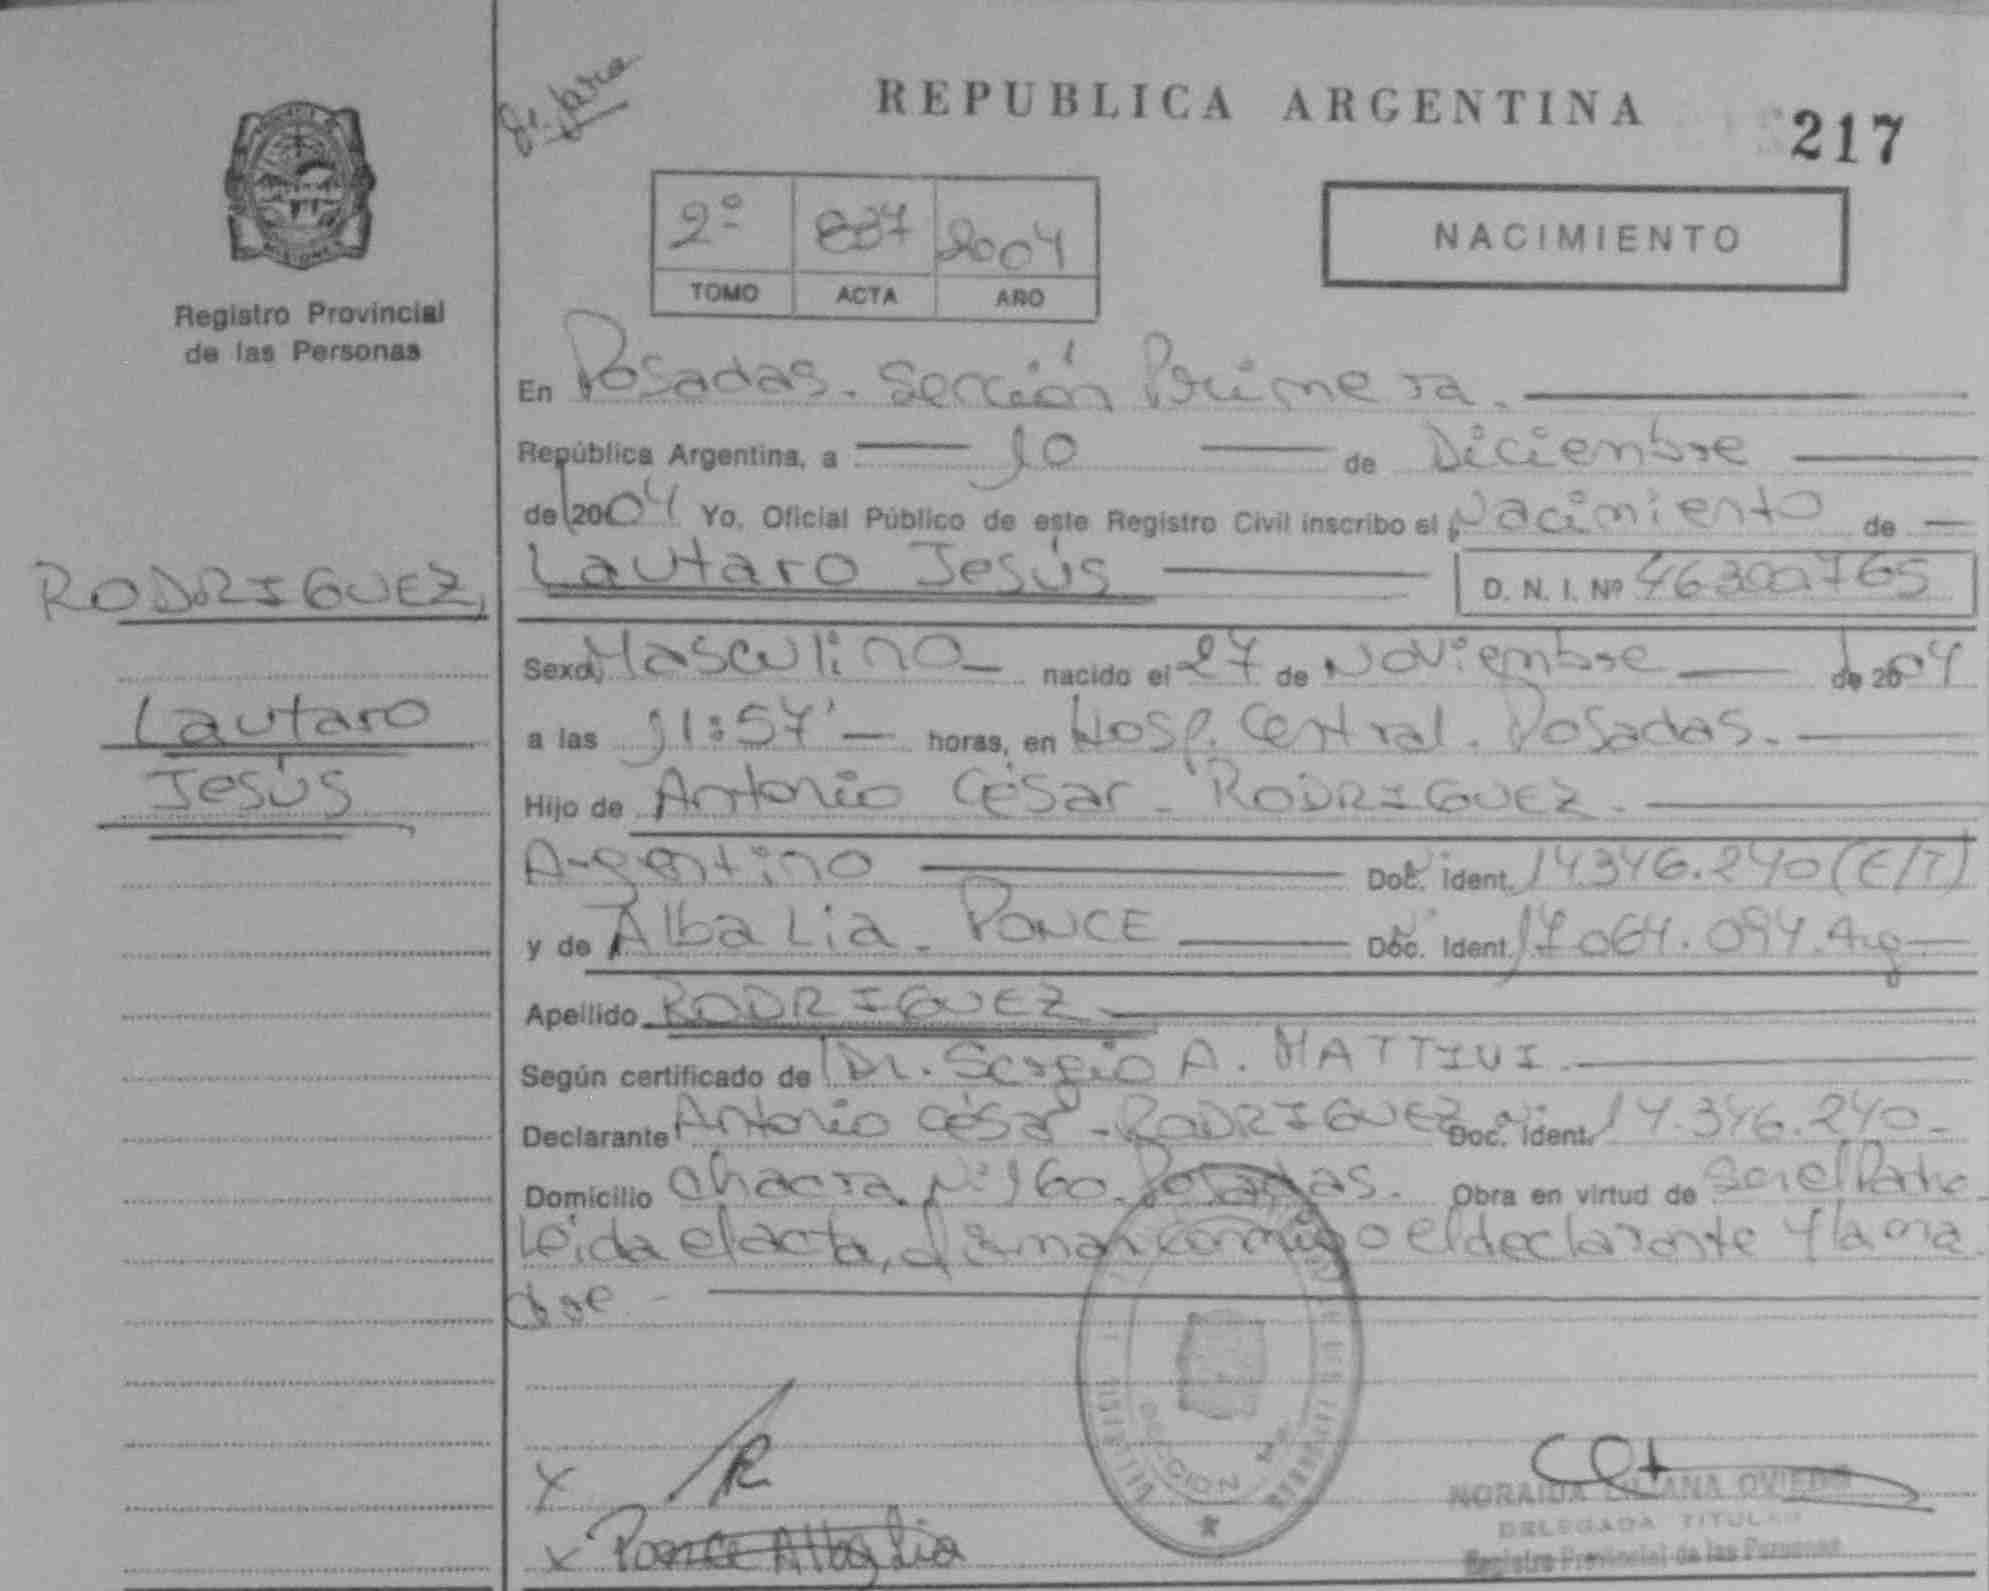 REPUBLICA ARGENTINA
217
2º 887 2004
TOMO ACTA AÑO
NACIMIENTO
Registro Provincial
de las Personas
En Posadas. Sección Primera.
República Argentina, a 10 de Diciembre
de 2004 Yo, Oficial Público de este Registro Civil inscribo el Nacimiento de
RODRIGUEZ,
Lautaro Jesús D. N. I. Nº 46300765
Sexo Masculino nacido el 27 de Noviembre de 2004
Lautaro
a las 11:57' horas, en Hosp. Central. Posadas.
Jesús
Hijo de Antonio César - RODRIGUEZ.
Argentino Doc. Ident. 14.346.240 (E/T)
y de Alba Lia. PONCE Doc. Ident. 17.064.094. Arg
Apellido RODRIGUEZ
Según certificado de Dr. Sergio A. MATTIVI.
Declarante Antonio César - RODRIGUEZ Doc. Ident. 14.346.240-
Domicilio Chacra Nº 160. Posadas. Obra en virtud de Ser el Padre
Leída el acta, firman conmigo el declarante y la ma
dre -
X
x Ponce Alba Lia
NORAIDA LILIANA OVIEDO
DELEGADA TITULAR
Registro Provincial de las Personas